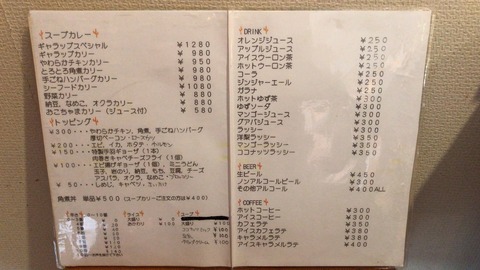 スープカレー
ギャラップスペシャル ¥1280
ギャラップカリー ¥980
やわらかチキンカリー ¥950
とろとろ角煮カリー ¥980
手ごねハンバーグカリー ¥980
シーフードカリー ¥1080
野菜カリー ¥880
納豆、なめこ、オクラカリー ¥880
おこちゃまカリー(ジュース付) ¥580
トッピング
¥300・・・やわらかチキン、角煮、手ごねハンバーグ
厚切ベーコン
¥200・・・エビ、イカ、ホタテ
¥150・・・特製手羽ギョーザ(1本)
肉巻きキャベチーズフライ(1個)
¥100・・・エビ揚げギョーザ(1個)、ミニうどん
玉子、岩のり、納豆、もち、豆腐、チーズ
アスパラ、オクラ、なめこ
¥50・・・しめじ、キャベツ
角煮丼 単品¥500(スープカリーご注文の方は¥400)
ライス
スープ
DRINK
オレンジジュース ¥250
アップルジュース ¥250
アイスウーロン茶 ¥250
ホットウーロン茶 ¥250
コーラ ¥250
ジンジャーエール ¥250
ガラナ ¥250
ホットゆず茶 ¥300
ゆずソーダ ¥300
マンゴージュース ¥300
グアバジュース ¥300
ラッシー ¥300
洋梨ラッシー ¥350
マンゴーラッシー ¥350
ココナッツラッシー ¥350
BEER
生ビール ¥450
ノンアルコールビール ¥350
その他アルコール ¥400ALL
COFFEE
ホットコーヒー ¥300
アイスコーヒー ¥300
カフェラテ ¥350
アイスカフェラテ ¥350
キャラメルラテ ¥400
アイスキャラメルラテ ¥400